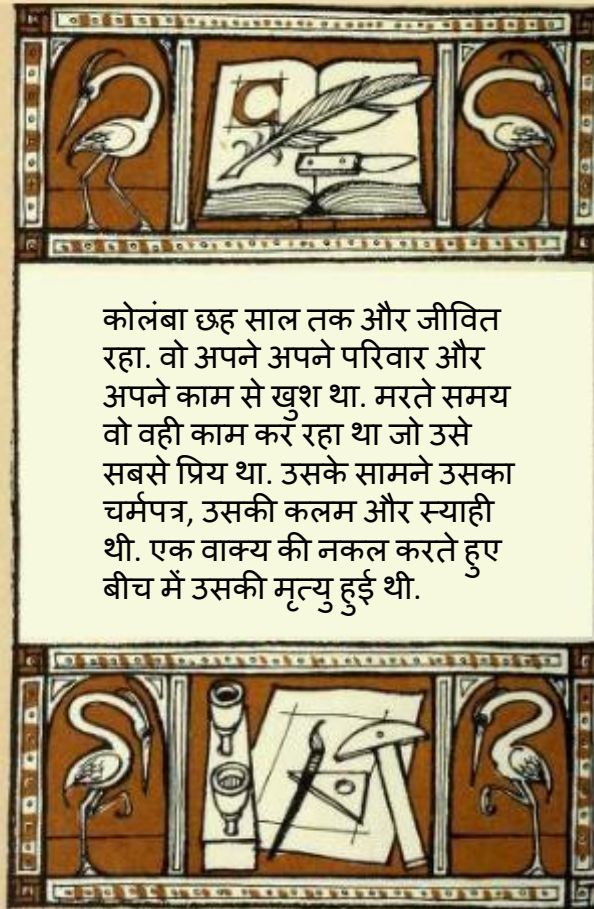 कोलंबा छह साल तक और जीवित
रहा. वो अपने अपने परिवार और
अपने काम से खुश था. मरते समय
वो वही काम कर रहा था जो उसे
सबसे प्रिय था. उसके सामने उसका
चर्मपत्र, उसकी कलम और स्याही
थी. एक वाक्य की नकल करते हुए
बीच में उसकी मृत्यु हुई थी.